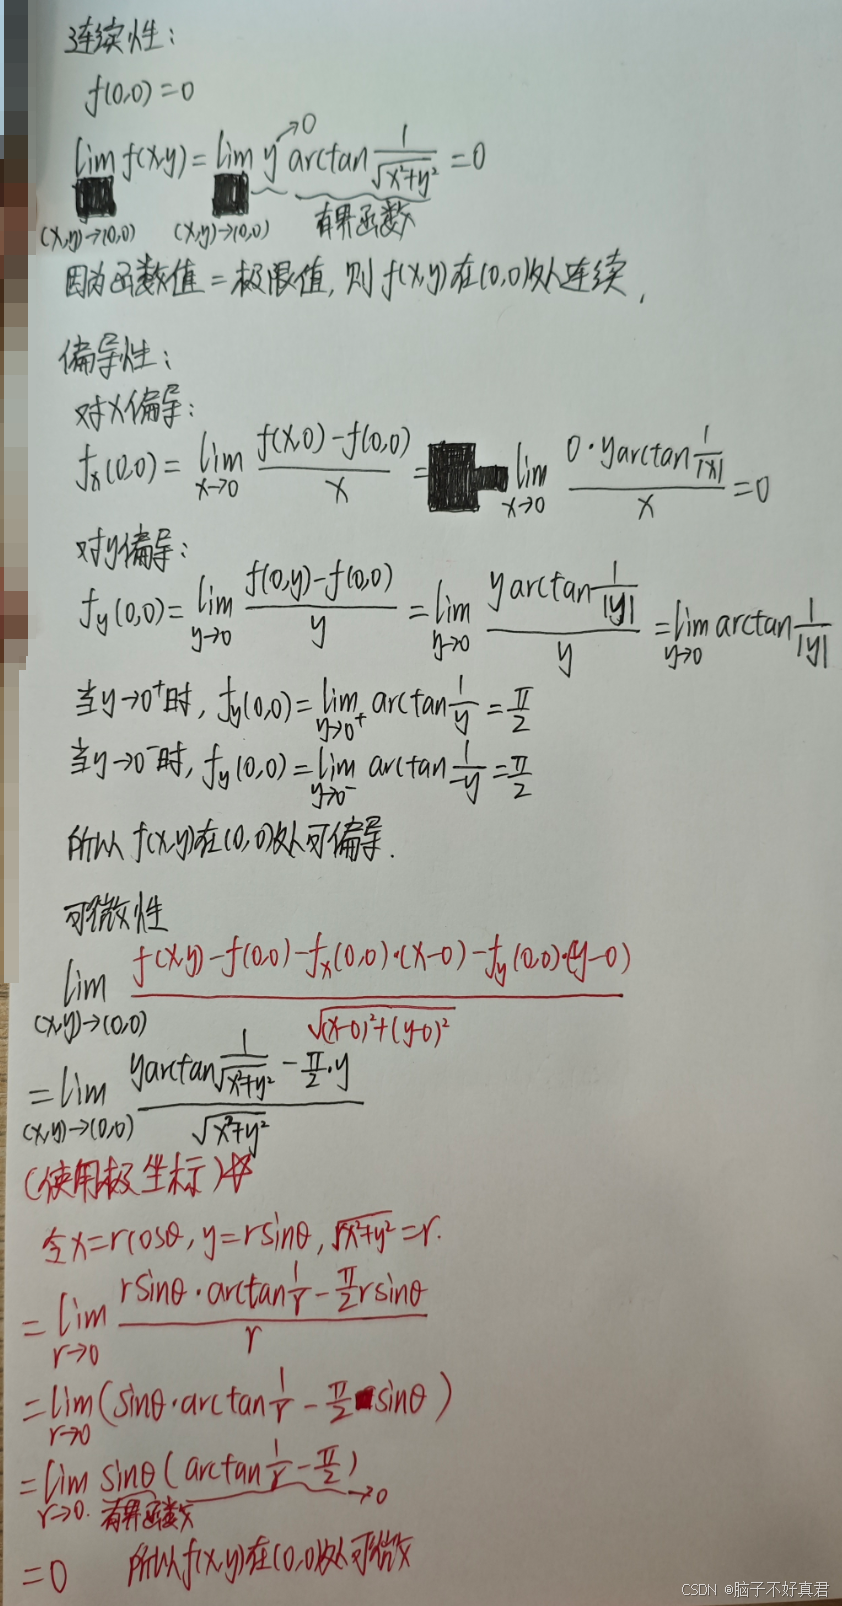 连续性：
f(0,0)=0
lim f(x,y)=lim y→0 arctan 1/√x²+y² =0
(x,y)→(0,0) (x,y)→(0,0) 有界函数
因为函数值=极限值,则f(x,y)在(0,0)处连续.
偏导性：
对x偏导：
fx(0,0)=lim x→0 f(x,0)-f(0,0)/x = lim x→0 0·yarctan 1/|x| /x =0
对y偏导：
fy(0,0)=lim y→0 f(0,y)-f(0,0)/y =lim y→0 yarctan 1/|y| /y =lim y→0 arctan 1/|y|
当y→0⁺时,fy(0,0)=lim y→0⁺ arctan 1/y = π/2
当y→0⁻时,fy(0,0)=lim y→0⁻ arctan 1/-y = π/2
所以f(x,y)在(0,0)处可偏导.
可微性
lim (x,y)→(0,0) f(x,y)-f(0,0)-fx(0,0)·(x-0)-fy(0,0)·(y-0) / √(x-0)²+(y-0)²
=lim (x,y)→(0,0) yarctan 1/√x²+y² - π/2·y / √x²+y²
(使用极坐标)☆
令x=rcosθ,y=rsinθ,√x²+y²=r.
=lim r→0 rsinθ·arctan 1/r - π/2 rsinθ / r
=lim r→0 (sinθ·arctan 1/r - π/2 sinθ)
=lim r→0. sinθ(arctan 1/r - π/2)→0
有界函数
=0 所以f(x,y)在(0,0)处可微
CSDN @脑子不好真君